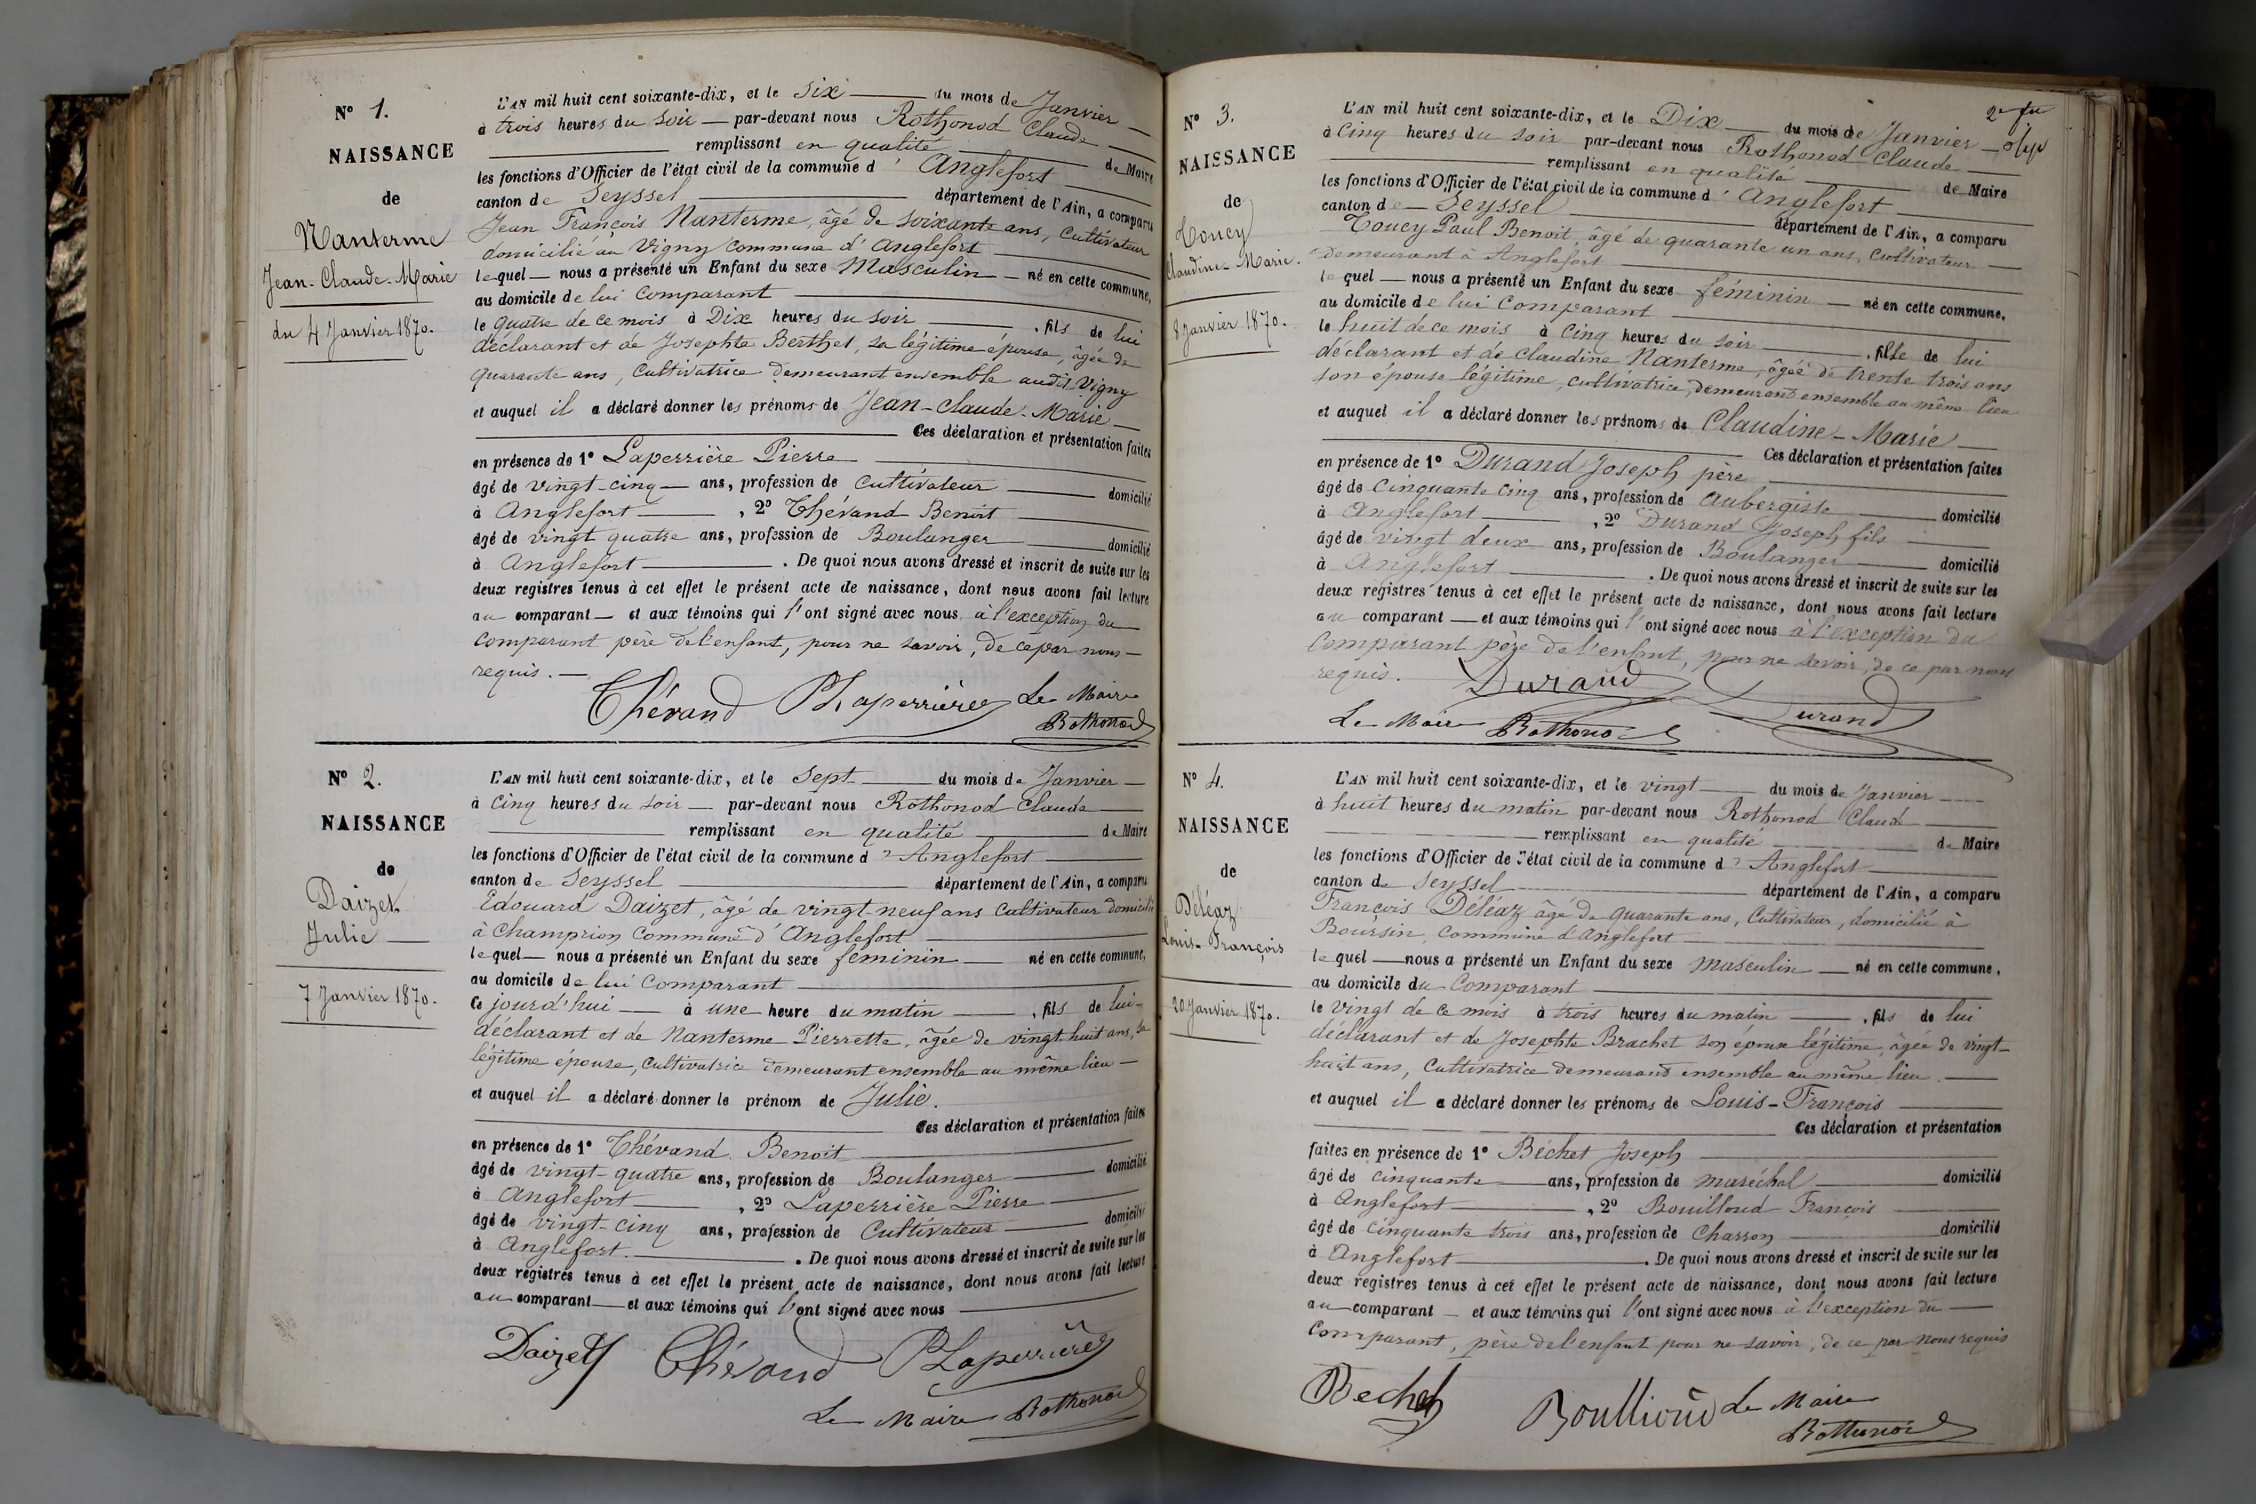 N° 1.
NAISSANCE
de
Nanterme
Jean-Claude-Marie
du 4 Janvier 1870.
L'AN mil huit cent soixante-dix, et le Six du mois de Janvier
à trois heures du soir par-devant nous Rothonod Claude
remplissant en qualité de Maire
les fonctions d'Officier de l'état civil de la commune d' Anglefort
canton de Seyssel département de l'Ain, a comparu
Jean François Nanterme, âgé de soixante ans, Cultivateur
domicilié au Vigny commune d'Anglefort
lequel nous a présenté un Enfant du sexe Masculin né en cette commune,
au domicile de lui comparant
le quatre de ce mois à Dix heures du soir , fils de lui
déclarant et de Josephte Berthet, sa légitime épouse, âgée de
quarante ans, Cultivatrice demeurant ensemble audit Vigny
et auquel il a déclaré donner les prénoms de Jean-Claude-Marie
Ces déclaration et présentation faites
en présence de 1° Laperrière Pierre
âgé de vingt-cinq ans, profession de Cultivateur domicilié
à Anglefort , 2° Thévand Benoit
âgé de vingt quatre ans, profession de Boulanger domicilié
à Anglefort . De quoi nous avons dressé et inscrit de suite sur les
deux registres tenus à cet effet le présent acte de naissance, dont nous avons fait lecture
au comparant et aux témoins qui l'ont signé avec nous à l'exception du
comparant père de l'enfant, pour ne savoir, de ce par nous
requis.
Thévand PLaperrière Le Maire
Rothonod
N° 2.
NAISSANCE
de
Daizet
Julie
7 Janvier 1870.
L'AN mil huit cent soixante-dix, et le Sept du mois de Janvier
à Cinq heures du soir par-devant nous Rothonod Claude
remplissant en qualité de Maire
les fonctions d'Officier de l'état civil de la commune d'Anglefort
canton de Seyssel département de l'Ain, a comparu
Edouard Daizet, âgé de vingt-neuf ans Cultivateur domicilié
à Champrion Commune d'Anglefort
lequel nous a présenté un Enfant du sexe féminin né en cette commune,
au domicile de lui Comparant
Ce jourd'hui à une heure du matin , fils de lui-
déclarant et de Nanterme Pierrette, âgée de vingt huit ans, sa
légitime épouse, Cultivatrice demeurant ensemble au même lieu
et auquel il a déclaré donner le prénom de Julie.
Ces déclaration et présentation faites
en présence de 1° Thévand Benoit
âgé de vingt-quatre ans, profession de Boulanger domicilié
à Anglefort , 2° Laperrière Pierre
âgé de vingt-cinq ans, profession de Cultivateur domicilié
à Anglefort. . De quoi nous avons dressé et inscrit de suite sur les
deux registres tenus à cet effet le présent acte de naissance, dont nous avons fait lecture
au comparant et aux témoins qui l'ont signé avec nous
Daizet Thévand PLaperrière
Le Maire Rothonod
2e fu
N° 3.
NAISSANCE
de
Toucy
Claudine-Marie.
8 Janvier 1870.
L'AN mil huit cent soixante-dix, et le Dix du mois de Janvier
à Cinq heures du soir par-devant nous Rothonod Claude
remplissant en qualité de Maire
les fonctions d'Officier de l'état civil de la commune d'Anglefort
canton de Seyssel département de l'Ain, a comparu
Toucy Paul Benoit, âgé de quarante un ans, Cultivateur
demeurant à Anglefort
lequel nous a présenté un Enfant du sexe féminin né en cette commune,
au domicile de lui Comparant
le huit de ce mois à Cinq heures du soir , fille de lui
déclarant et de Claudine Nanterme, âgée de trente trois ans
son épouse légitime, cultivatrice, demeurant ensemble au même lieu
et auquel il a déclaré donner les prénoms de Claudine-Marie
Ces déclaration et présentation faites
en présence de 1° Durand Joseph père
âgé de Cinquante cinq ans, profession de Aubergiste domicilié
à Anglefort , 2° Durand Joseph fils
âgé de vingt deux ans, profession de Boulanger domicilié
à Anglefort . De quoi nous avons dressé et inscrit de suite sur les
deux registres tenus à cet effet le présent acte de naissance, dont nous avons fait lecture
au comparant et aux témoins qui l'ont signé avec nous à l'exception du
Comparant père de l'enfant, pour ne savoir, de ce par nous
requis. Durand
Durand
Le Maire Rothonod
N° 4.
NAISSANCE
de
Déléaz
Louis-François
20 Janvier 1870.
L'AN mil huit cent soixante-dix, et le vingt du mois de Janvier
à huit heures du matin par-devant nous Rothonod Claude
remplissant en qualité de Maire
les fonctions d'Officier de l'état civil de la commune d'Anglefort
canton de Seyssel département de l'Ain, a comparu
François Déléaz âgé de quarante ans, Cultivateur, domicilié à
Boursin, Commune d'Anglefort
lequel nous a présenté un Enfant du sexe masculin né en cette commune,
au domicile du Comparant
le vingt de ce mois à trois heures du matin , fils de lui
déclarant et de Josephte Brachet son épouse légitime, âgée de vingt-
huit ans, Cultivatrice demeurant ensemble au même lieu.
et auquel il a déclaré donner les prénoms de Louis-François
Ces déclaration et présentation
faites en présence de 1° Béchet Joseph
âgé de cinquante ans, profession de maréchal domicilié
à Anglefort , 2° Bouilloud François
âgé de cinquante trois ans, profession de Charron domicilié
à Anglefort . De quoi nous avons dressé et inscrit de suite sur les
deux registres tenus à cet effet le présent acte de naissance, dont nous avons fait lecture
au comparant et aux témoins qui l'ont signé avec nous à l'exception du
Comparant, père de l'enfant pour ne savoir, de ce par nous requis
Bechet Boullioud Le Maire
Rothonod